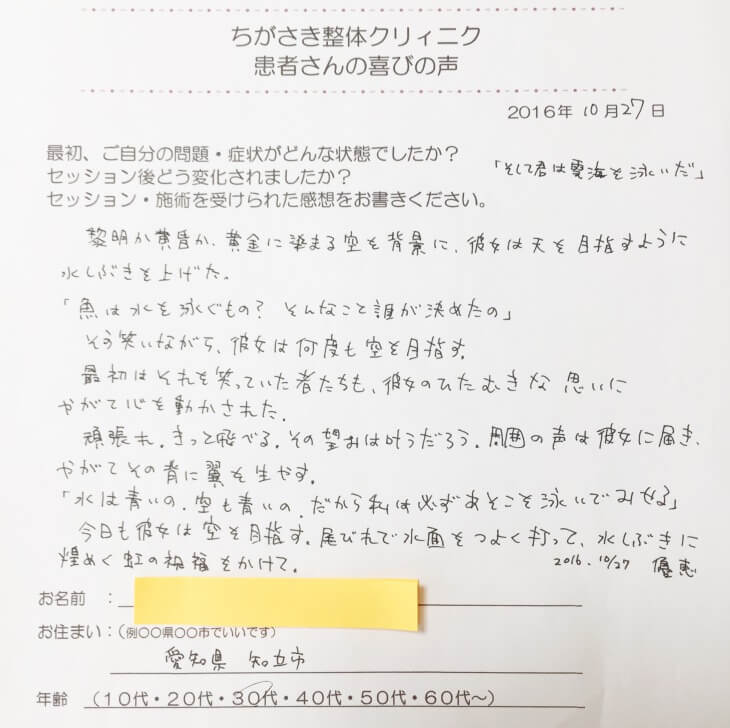 ちがさき整体クリィニク
患者さんの喜びの声
2016年 10月27日
最初、ご自分の問題・症状がどんな状態でしたか？
セッション後どう変化されましたか？
「そして君は雲海を泳いだ」
セッション・施術を受けられた感想をお書きください。
黎明か黄昏か、黄金に染まる空を背景に、彼女は天を目指すように
水しぶきを上げた。
「魚は水を泳ぐもの？ そんなこと誰が決めたの」
そう笑いながら、彼女は何度も空を目指す。
最初はそれを笑っていた者たちも、彼女のひたむきな思いに
やがて心を動かされた。
頑張れ、きっと飛べる。その望みは叶うだろう。周囲の声は彼女に届き、
やがてその背に翼を生やす。
「水は青いの、空も青いの、だから私は必ずあそこを泳いでみせる」
今日も彼女は空を目指す。尾びれで水面をつよく打って、水しぶきに
煌めく虹の祝福をかけて。
2016. 10/27 優恵
お名前 ：
お住まい：（例〇〇県〇〇市でいいです）
愛知県 知立市
年齢 （10代・20代・30代・40代・50代・60代～）